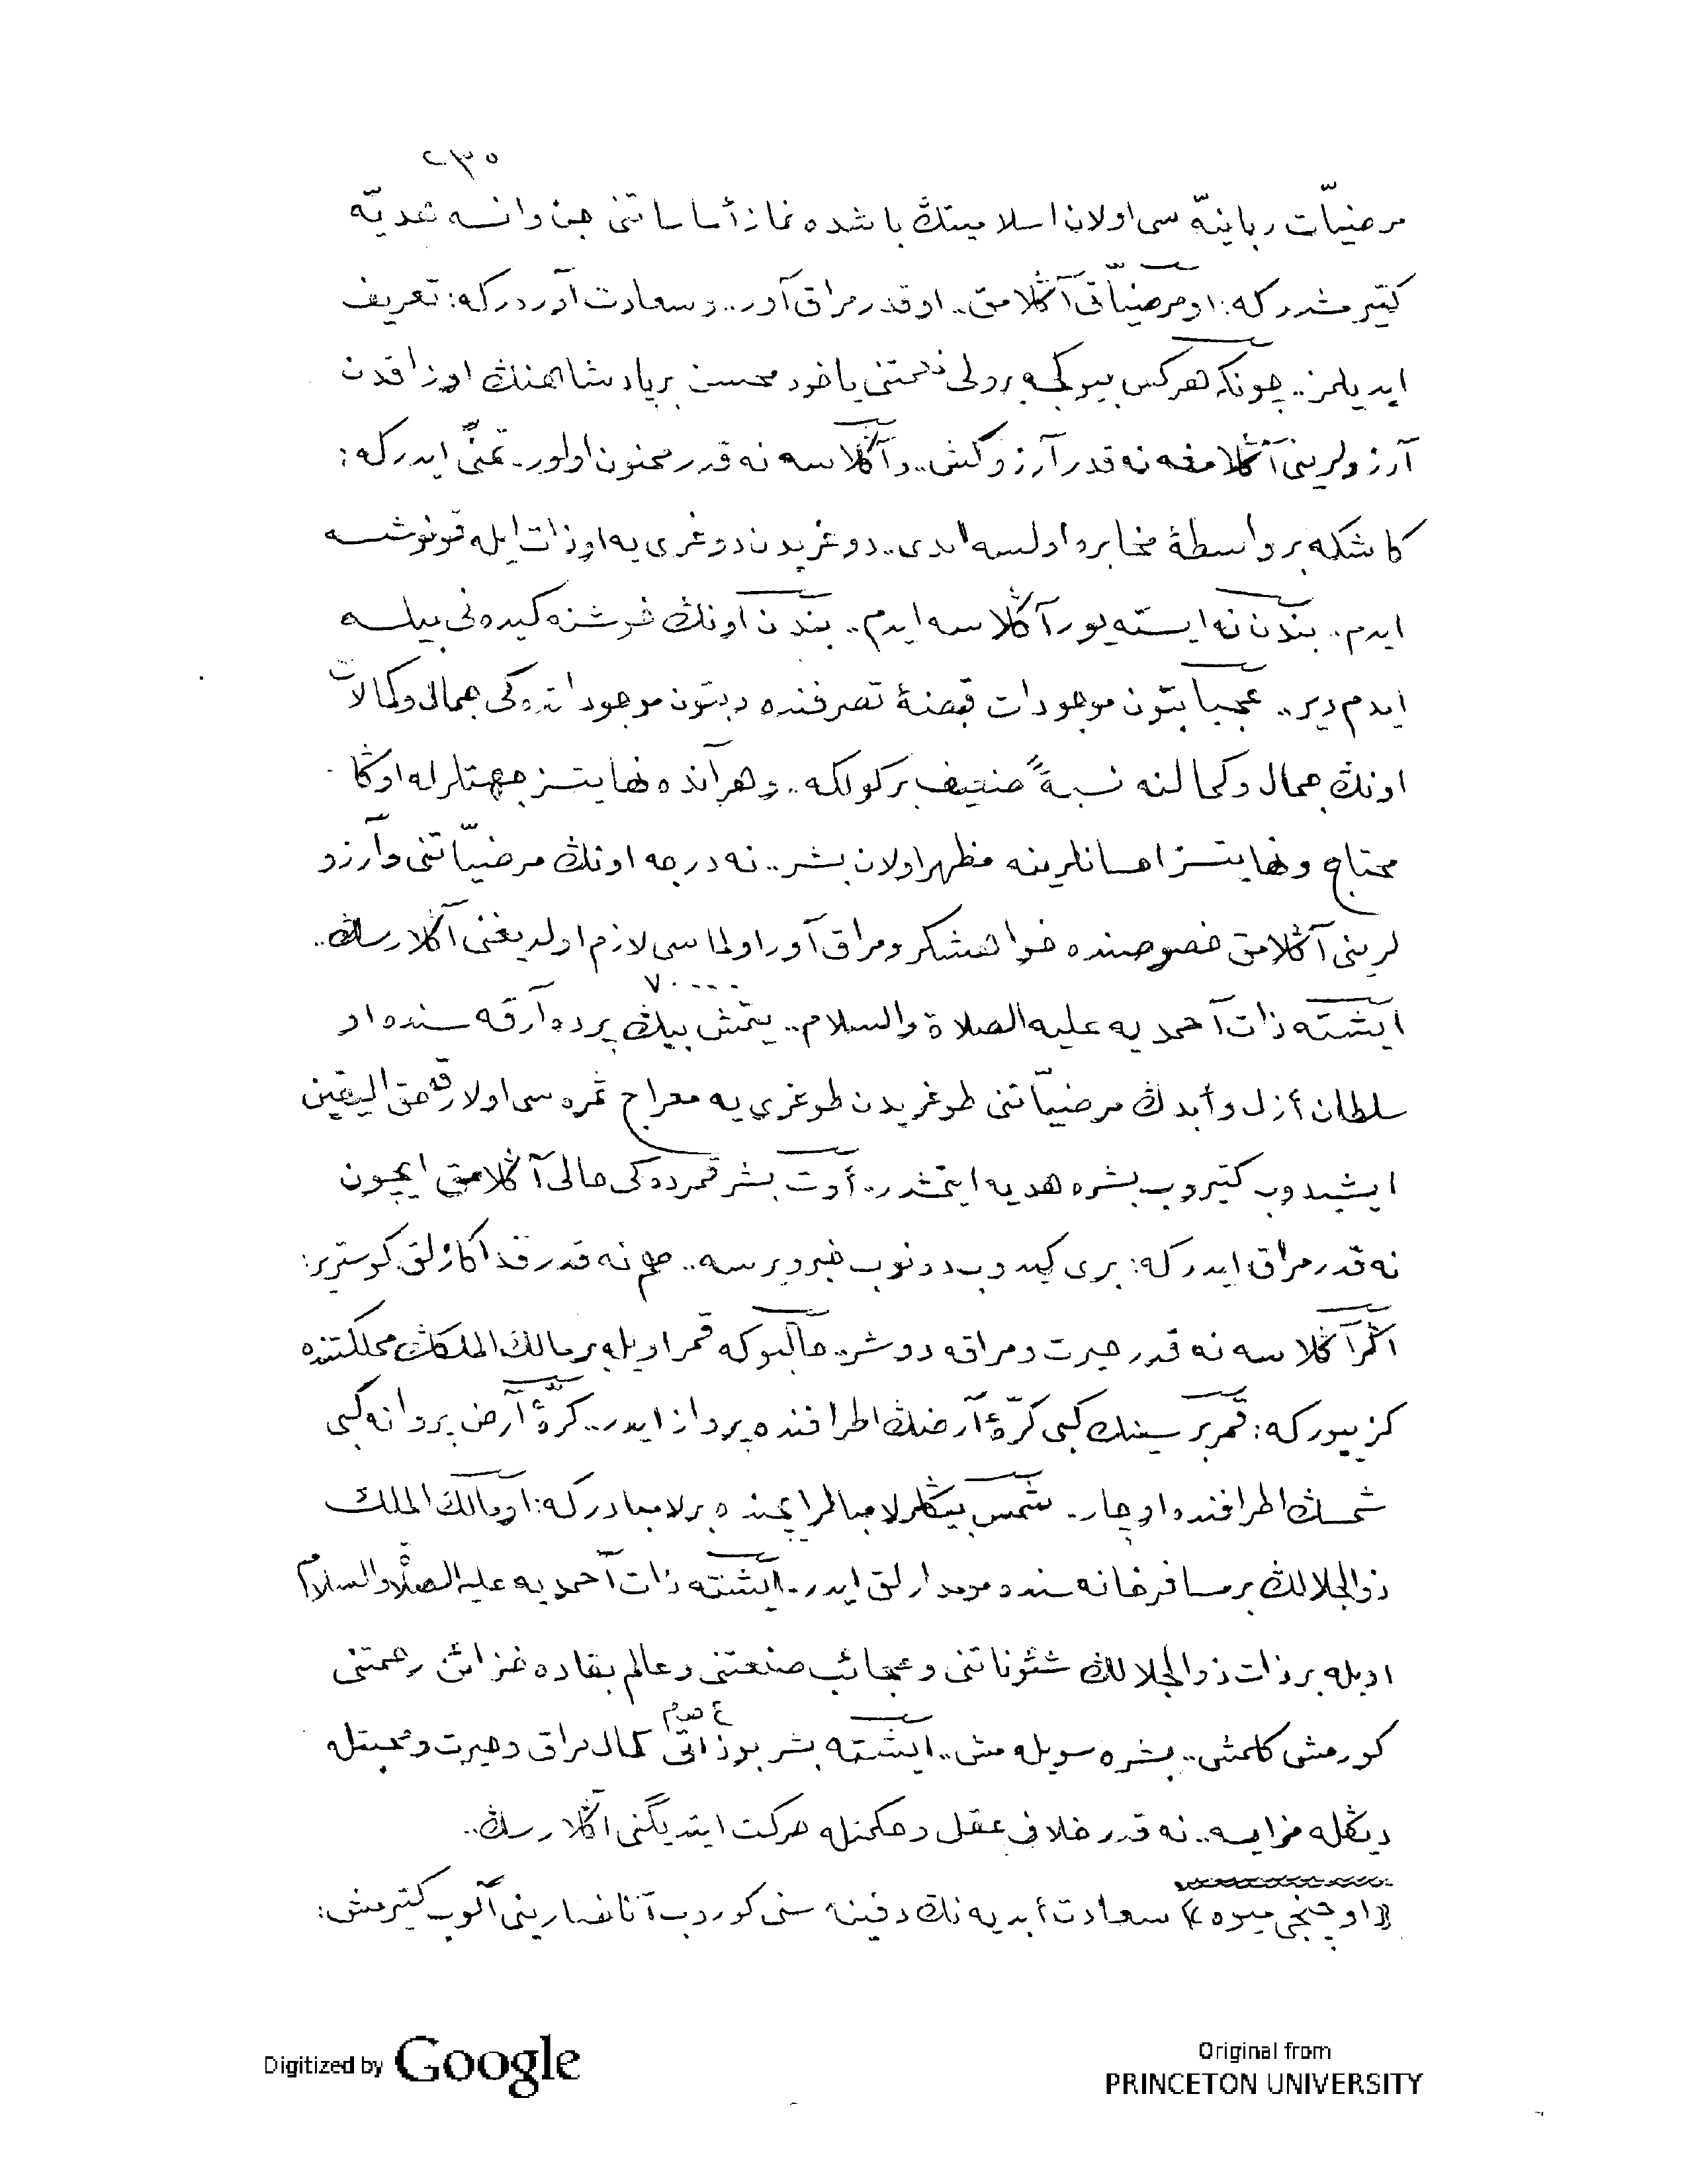 ٢٣٥
مرضيّات ربانيّه سی اولان اسلاميتڭ باشده نماز أساساتنی جن وانسه هديّه
كتيرمشدركه: او مرضيّاتی آڭلامق.. اوقدر مراق آور.. و سعادت آوردركه: تعريف
ايديلمز.. چونكه هركس بيوكجه برولی نعمتنی ياخود محسن برپادشاهنڭ اوزاقدن
آرزولرينی آڭلامغه نه قدر آرزوكش.. وآڭلاسه نه قدر ممنون اولور. تمنّی ايدركه:
كاشكه بر واسطۀ مخابره اولسه ايدی.. دوغريدن دوغری يه او ذات ايله قونوشسه
ايدم. بندن نه ايسته يور آڭلاسه ايدم.. بندن اونڭ خوشنه كيده نی بيلسه
ايدم دير.. عجبا بتون موجودات قبضۀ تصرفنده وبتون موجوداتده كی جمال وكمالات
اونڭ جمال وكمالنه نسبةً ضعيف بر كولكه.. وهر آنده نهايتسز جهتلرله اوڭا
محتاج ونهايتسز احسانلرينه مظهر اولان بشر.. نه درجه اونڭ مرضيّاتنی وآرزو
لرينی آڭلامق خصوصنده خواهشكر ومراق آور اولماسی لازم اولديغنی آڭلارسڭ..
٧٠٠٠٠
ايشته ذات آحمديه عليه الصلاة والسلام.. يتمش بيڭ پرده آرقه سنده او
سلطان أزل وأبدڭ مرضيّاتنی طوغريدن طوغری يه معراج ثمره سی اولارق حق اليقين
ايشيدوب كتيروب بشره هديه ايتمشدر. أوت بشر قمرده كی حالی آڭلامق ايچون
نه قدر مراق ايدركه: بری كيدوب دونوب خبر ويرسه.. هم نه قدر فداكارلق كوسترير:
اڭر آڭلاسه نه قدر حيرت ومراقه دوشر. حالبوكه قمر اويله بر مالك الملكڭ مملكتنده
كزييوركه: قمر بر سينك كبی كرّۀ آرضڭ اطرافنده پرواز ايدر.. كرّۀ آرض پروانه كبی
شمسڭ اطرافنده اوچار. شمس بيڭلر لامبالر ايچنده بر لامبادركه: او مالك الملك
ذوالجلالڭ بر مسافرخانه سنده مومدارلق ايدر. ايشته ذات آحمديه عليه الصلاة والسلام
اويله بر ذات ذوالجلالڭ شئوناتنی وعجائب صنعتنی وعالم بقاده خزائن رحمتنی
كورمش كلمش.. بشره سويله مش.. ايشته بشر بو ذاتی ع ص م كمال مراق وحيرت ومحبتله
ديڭله مزايسه.. نه قدر خلاف عقل وحكمتله حركت ايتديگنی آڭلارسڭ..
«اوچنجی ميوه» سعادت أبديه نڭ دفينه سنی كوروب آناختارينی آلوب كتيرمش:
Digitized by Google
Original from
PRINCETON UNIVERSITY